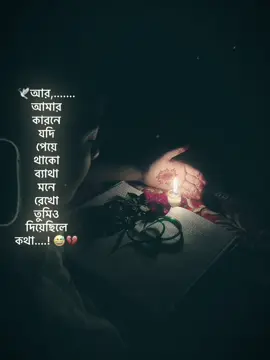 🕊️আর,.......
আমার
কারনে
যদি
পেয়ে
থাকো
ব্যাথা
মনে
রেখো
তুমিও
দিয়েছিলে
কথা....! 😅💔